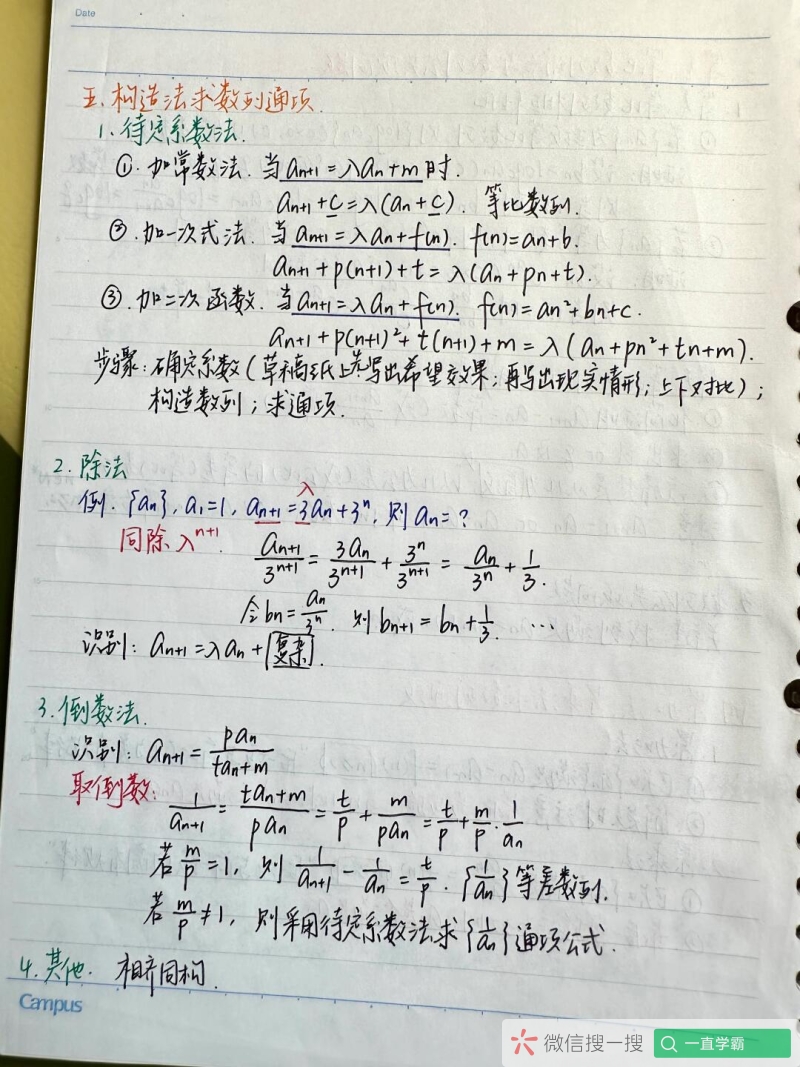 Date
五.构造法求数列通项.
1.待定系数法.
①.加常数法.当aₙ₊₁=λaₙ+m时.
aₙ₊₁+c=λ(aₙ+c).等比数列.
②.加一次式法.当aₙ₊₁=λaₙ+f(n). f(n)=an+b.
aₙ₊₁+p(n+1)+t=λ(aₙ+pn+t).
③.加二次函数.当aₙ₊₁=λaₙ+f(n). f(n)=an²+bn+c.
aₙ₊₁+p(n+1)²+t(n+1)+m=λ(aₙ+pn²+tn+m).
步骤:确定系数(草稿纸上先写出希望效果;再写出现实情形;上下对比);
构造数列;求通项.
2.除法
λ
例.{aₙ},a₁=1,aₙ₊₁=3aₙ+3ⁿ,则aₙ=?
同除λⁿ⁺¹. aₙ₊₁/3ⁿ⁺¹=3aₙ/3ⁿ⁺¹+3ⁿ/3ⁿ⁺¹=aₙ/3ⁿ+1/3.
令bₙ=aₙ/3ⁿ.则bₙ₊₁=bₙ+1/3. ...
识别:aₙ₊₁=λaₙ+复杂.
3.倒数法.
识别:aₙ₊₁=paₙ/(taₙ+m)
取倒数:
1/aₙ₊₁=(taₙ+m)/(paₙ)=t/p+m/(paₙ)=t/p+m/p·1/aₙ
若m/p=1,则1/aₙ₊₁-1/aₙ=t/p.{1/aₙ}等差数列.
若m/p≠1,则采用待定系数法求{1/aₙ}通项公式.
4.其他.相齐同构.
Campus
微信搜一搜 一直学霸